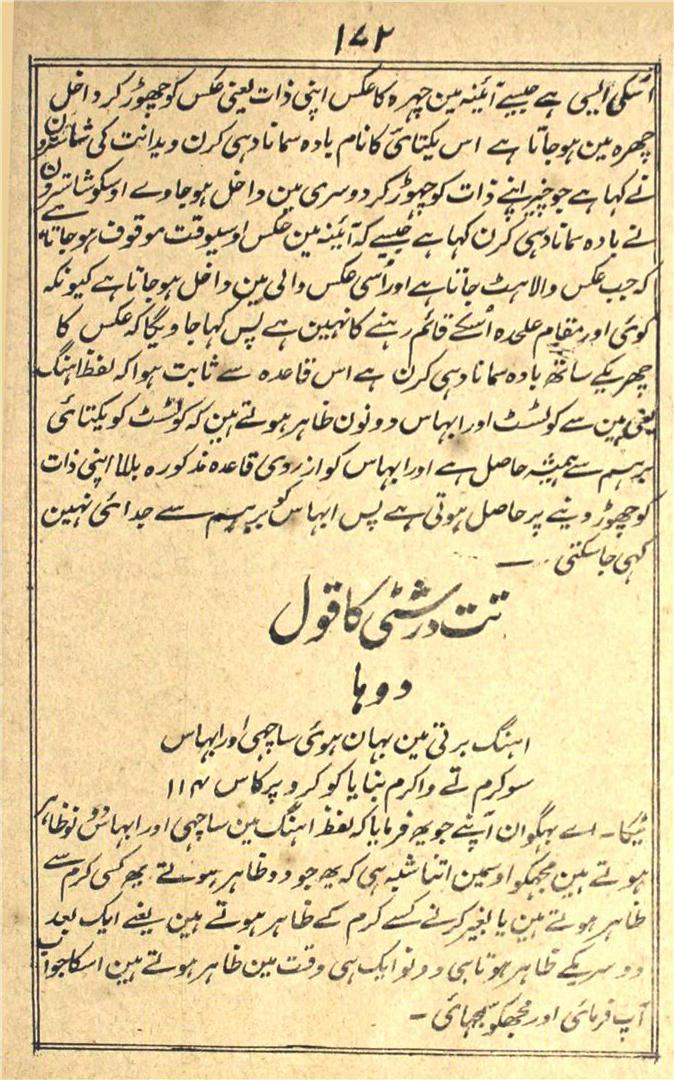 ۱۷۲
اسکی ایسی ہے جیسے آئینہ مین چہرہ کا عکس اپنی ذات یعنی عکس کو چھوڑ کر داخل
چہرہ مین ہوجاتا ہے اس یکتائی کا نام بادہ سمانادہی کرن ویدانت کی شاسترون
نے کہا ہے جو چیز اپنے ذات کو چہوڑ کر دوسری مین داخل ہوجاوے اوسکو شاسترون
نے بادہ سمانادہی کرن کہا ہے جیسے کہ آئینہ مین عکس اوسیوقت موقوف ہوجاتا ہے
کہ جب عکس والا ہٹ جاتا ہے اور اُسی عکس والی مین داخل ہوجاتا ہے کیونکہ
کوئی اور مقام علحدہ اُسکے قائم رہنے کا نہین ہے پس کہا جاویگا کہ عکس کا
چہریکے ساتھ بادہ سمانادہی کرن ہے اس قاعدہ سے ثابت ہوا کہ لفظ اہنگ
یعنی مین سے کوٹسٹ اور ابہاس دونون ظاہر ہوتے ہین کہ کوٹسٹ کو یکتائی
برہم سے ہمیشہ حاصل ہے اور ابہاس کو ازروی قاعدہ مذکورہ بالا اپنی ذات
کو چھوڑ دینے پر حاصل ہوتی ہے پس ابہاس کو برہم سے جدائی نہین
کہی جاسکتی ۔
تت درشٹی کا قول
دوہا
اہنگ برتی مین بہان ہوئی ساچہی اور ابہاس
سو کرم تے وا کرم بنا یا کو کرو پرکاس ۱۱۴
ٹیکا ۔ اے بہگوان آپنے جو یہ فرمایا کہ لفظ اہنگ مین ساچہی اور ابہاس دونو ظاہر
ہوتے ہین مجہکو اوسمین اتنا شبہ ہی کہ یہ جو دو ظاہر ہوتے یہ کسی کرم سے
ظاہر ہوتے ہین یا بغیر کرنے کسے کرم کے ظاہر ہوتے ہین یعنے ایک بعد
دوسریکے ظاہر ہوتا ہی دونو ایک ہی وقت مین ظاہر ہوتے ہین اسکا جواب
آپ فرمائی اور مجھکو سمجہائی ۔